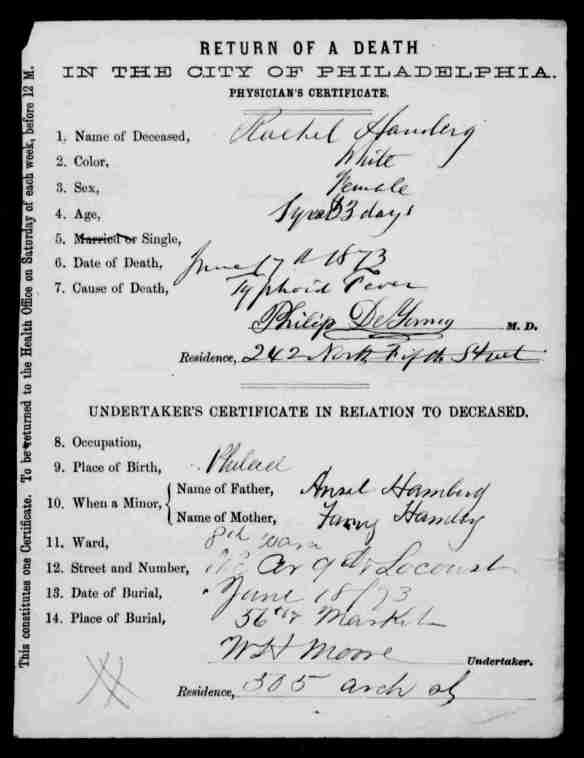 RETURN OF A DEATH
IN THE CITY OF PHILADELPHIA.
PHYSICIAN'S CERTIFICATE.
1. Name of Deceased, Rachel Hamberg
2. Color, White
3. Sex, Female
4. Age, 3 days
5. Married or Single,
6. Date of Death, June 17th 1873
7. Cause of Death, Typhoid Fever
Philip De Young M. D.
Residence, 242 North Fifth Street
UNDERTAKER'S CERTIFICATE IN RELATION TO DECEASED.
8. Occupation,
9. Place of Birth, Philad
10. When a Minor, Name of Father, Ansel Hamberg
Name of Mother, Fanny Hamberg
11. Ward, 8th Ward
12. Street and Number, Cor 9th Locoust
13. Date of Burial, June 18/73
14. Place of Burial, 56th Market
W H Moore Undertaker.
Residence, 505 arch st
This constitutes one Certificate. To be returned to the Health Office on Saturday of each week, before 12 M.